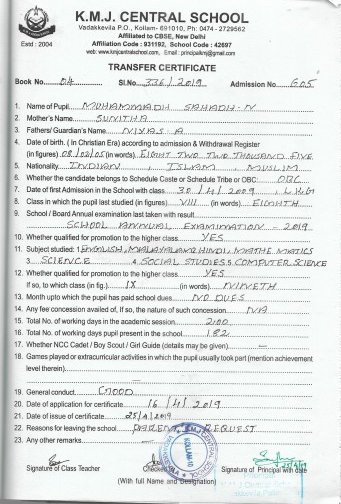 K.M.J. CENTRAL SCHOOL
Vadakkevila P.O., Kollam- 691010, Ph: 0474 - 2729562
Affiliated to CBSE, New Delhi
Affiliation Code : 931192, School Code : 42697
web:www.kmjcentralschool.com, Email : principalkmj@gmail.com
Estd : 2004
TRANSFER CERTIFICATE
Book No. 04 Sl.No. 336/2019 Admission No. 605
1. Name of Pupil MUHAMMADH SAHADH-N
2. Mother's Name SUNITHA
3. Fathers/Guardian's Name NIYAS A
4. Date of birth. ( In Christian Era) according to admission & Withdrawal Register
(in figures) 08/02/05 (in words) EIGHT TWO TWO THOUSAND FIVE
5. Nationality INDIAN, ISLAM, MUSLIM
6. Whether the candidate belongs to Schedule Caste or Schedule Tribe or OBC: OBC
7. Date of first Admission in the School with class 30/4/2009, LKG
8. Class in which the pupil last studied (in figures) VIII (in words) EIGHTH
9. School / Board Annual examination last taken with result
SCHOOL ANNUAL EXAMINATION - 2019
10. Whether qualified for promotion to the higher class YES
11. Subject studied: 1 ENGLISH, MALAYALAM, HINDI, MATHEMATICS
3. SCIENCE 4. SOCIAL STUDIES 5. COMPUTER SCIENCE
12. Whether qualified for promotion to the higher class YES
If so, to which class (in fig.) IX (in words) NINETH
13. Month upto which the pupil has paid school dues NO DUES
14. Any fee concession availed of, If so, the nature of such concession NA
15. Total No. of working days in the academic session 200
16. Total No. of working days pupil present in the school 182
17. Whether NCC Cadet / Boy Scout / Girl Guide (details may be given)
18. Games played or extracurricular activities in which the pupil usually took part (mention achievement
level therein)
19. General conduct GOOD
20. Date of application for certificate 16/4/2019
21. Date of issue of certificate 25/4/2019
22. Reasons for leaving the school PARENT REQUEST
23. Any other remarks
Signature of Class Teacher Checked Signature of Principal with date
(With full Name and Designation)